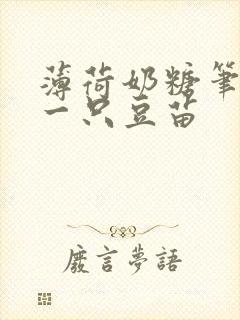 薄荷奶糖笔
一只豆苗
廢言夢語